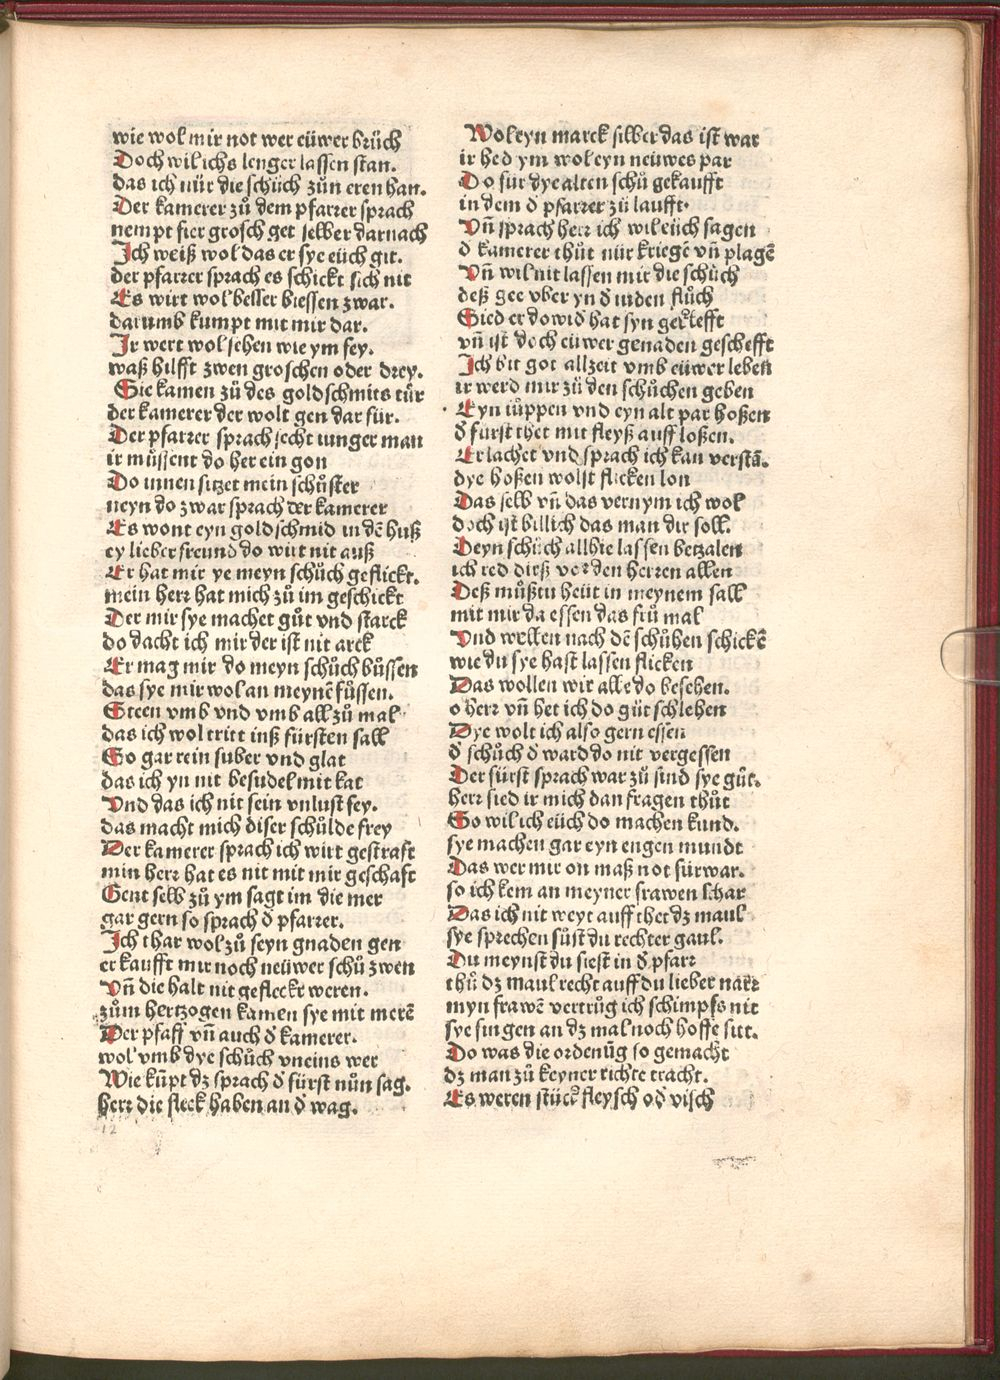 wie wol mir not wer eüwer brüch
Doch wil ichs lenger lassen stan.
das ich nür die schůch zůn eren han.
Der kamerer zů dem pfarrer sprach
nempt fier grosch get selber darnach
Ich weiß wol das er sye eüch git.
der pfarrer sprach es schickt sich nit
Es wirt wol besser biessen zwar.
darumb kumpt mit mir dar.
Ir wert wol sehen wie ym sey.
waß hilfft zwen groschen oder drey.
Sie kamen zů des goldschmits tür
der kamerer der wolt gen dar für.
Der pfarrer sprach secht iunger man
ir müssent do her ein gon
Do innen sitzet mein schůster
neyn do zwar sprach der kamerer
Es wont eyn goldschmid in dē huß
ey lieber freund do wirt nit auß
Er hat mir ye meyn schůch geflickt.
mein herr hat mich zů im geschickt
Der mir sye machet gůt vnd starck
do dacht ich mir der ist nit arck
Er mag mir do meyn schůch bůssen
das sye mir wol an meynē fůssen.
Steen vmb vnd vmb all zů mal
das ich wol tritt inß fürsten sall
So gar rein suber vnd glat
das ich yn nit besudel mit kat
Vnd das ich nit sein vnlust sey.
das macht mich diser schülde frey
Der kamerer sprach ich wirt gestraft
min herr hat es nit mit mir geschaft
Gent selb zů ym sagt im die mer
gar gern so sprach d̄ pfarrer.
Ich thar wol zů seyn gnaden gen
er kaufft mir noch neüwer schů zwen
Vn̄ die halt nit gefleckt weren.
zům hertzogen kamen sye mit merē
Der pfaff vn̄ auch d̄ kamerer.
wol vmb dye schůch vneins wer
Wie kūpt dz sprach d̄ fürst nůn sag.
herr die fleck haben an d̄ wag.
Wol eyn marck silber das ist war
ir hed ym wol eyn neüwes par
Do für dye alten schů gekaufft
in dem d̄ pfarrer zů laufft
Vn̄ sprach herr ich wil eüch sagen
d̄ kamerer thůt nür kriegē vn̄ plagē
Vn̄ wil nit lassen mir die schůch
deß gee vber yn d̄ iuden flůch
Sied er do wid̄ hat syn gescheft
vn̄ ist doch eüwer genaden geschefft
Ich bit got allzeit vmb eüwer leben
ir werd mir zů den schůchen geben
Eyn iůppen vnd eyn alt par hoßen
d̄ fürst thet mit fleyß auff loßen.
Er lachet vnd sprach ich kan verstā.
dye hoßen wolst flicken lon
Das selb vn̄ das vernym ich wol
doch ist billich das man dir soll.
Deyn schůch allhie lassen betzalen
ich red dirß vor den herren allen
Deß můßtu heüt in meynem sall
mit mir da essen das frů mal
Vnd wellen nach dē schůhen schickē
wie du sye hast lassen flicken
Das wollen wir alle do besehen.
o herr vn̄ het ich do gůt schlehen
Dye wolt ich also gern essen
d̄ schůch d̄ ward do nit vergessen
Der fürst sprach war zů sind sye gůt.
herr sied ir mich dan fragen thůt
So wil ich eüch do machen kund.
sye machen gar eyn engen mundt
Das wer mir on maß not fürwar.
so ich kem an meyner frawen schar
Das ich nit weyt auff thet dz maul
sye sprechen sůst du rechter gaul.
Du meynst du siest in d̄ pfarr
thů dz maul recht auff du lieber narr
myn frawē vertrůg ich schimpfs nit
sye singen an dz mal noch hoffe sitt.
Do was die ordenūg so gemacht
dz man zů keyner richte tracht.
Es weren stück fleysch od̄ visch